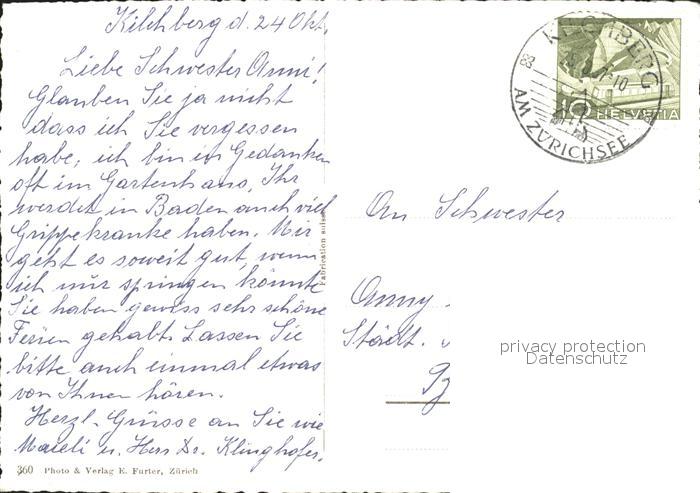 Kilchberg d. 24 Okt.
Liebe Schwester Anni!
Glauben Sie ja nicht
dass ich Sie vergessen
habe, ich bin in Gedanken
oft im Gartenhaus, Ihr
werdet in Baden auch viel
Grippekranke haben. Mir
geht es soweit gut, wenn
ich nur springen könnte
Sie haben gewiss sehr schöne
Ferien gehabt. Lassen Sie
bitte auch einmal etwas
von Ihnen hören.
Herzl. Grüsse an Sie wie
Maieli u. Herr Dr. Klinghofer.
360 Photo & Verlag E. Furter, Zürich
Fabrication suisse
KILCHBERG
AM ZÜRICHSEE
10 HELVETIA
An Schwester
Anny
Städt.
privacy protection
Datenschutz